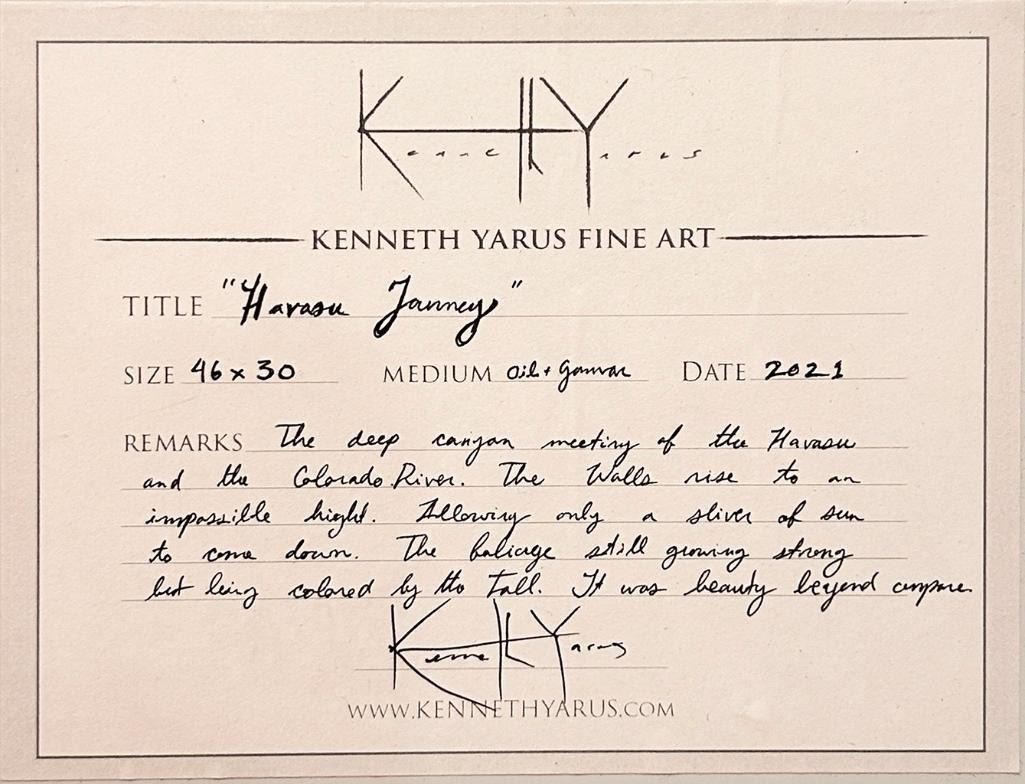 Kenneth Yarus
KENNETH YARUS FINE ART
TITLE "Havasu Journey"
SIZE 46 x 30 MEDIUM Oil + Gamvar DATE 2021
REMARKS The deep canyon meeting of the Havasu
and the Colorado River. The Walls rise to an
impossible hight. Allowing only a sliver of sun
to come down. The foliage still growing strong
but being colored by the fall. It was beauty beyond compare.
Kenneth Yarus
WWW.KENNETHYARUS.COM